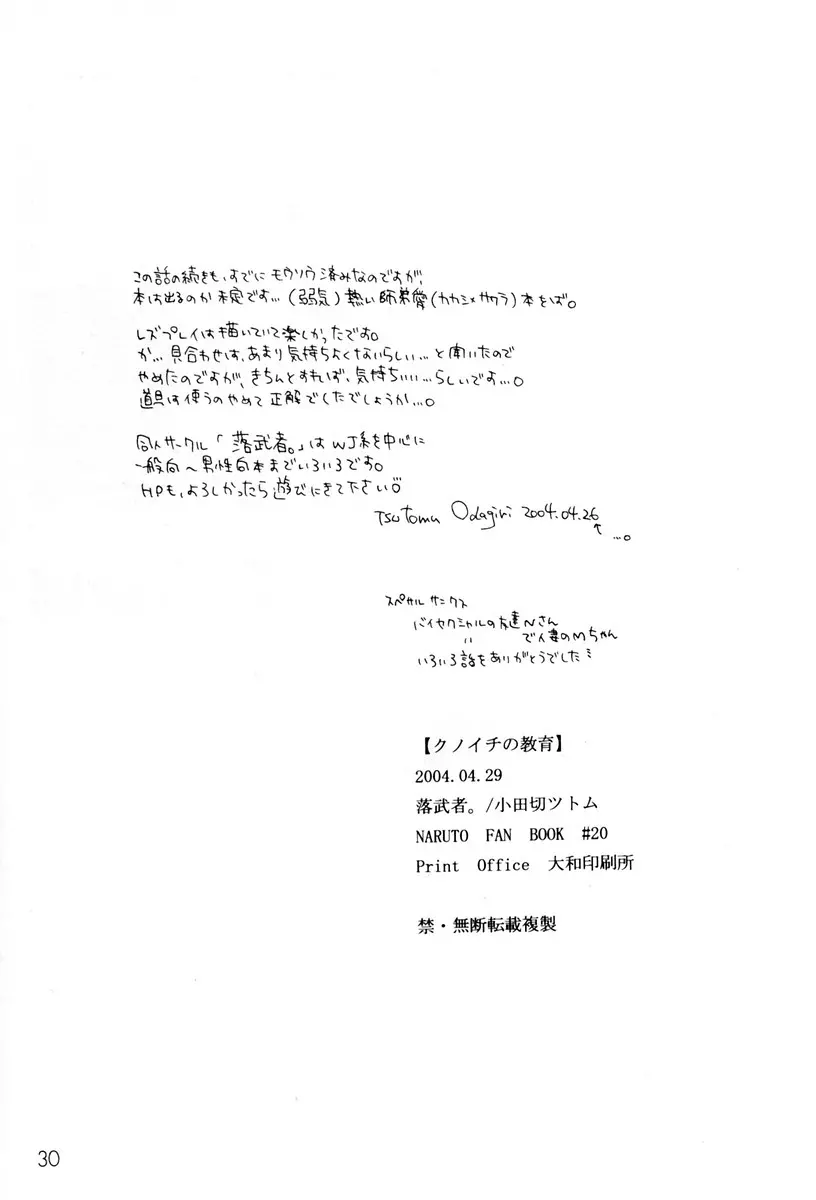 この話の続きも、すでにモウソウ済みなのですが、
本は出るのか未定です…(弱気)熱い師弟愛(カカシ×サクラ)本をば。
レズプレイは描いていて楽しかったです。
が…見合わせは、あまり気持ちよくないらしい…と聞いたので
やめたのですが、きちんとすれば、気持ちいい…らしいです…。
道具は使うのやめて正解でしたでしょうか…。
同人サークル「落武者。」はWJ系を中心に
一般向～男性向本までいろいろです。
HPも、よろしかったら遊びにきて下さい
Tsutomu Odagiri 2004.04.26
↑…。
スペサルサンクス
バイセクシャルの友達Nさん
〃 で人妻のMちゃん
いろいろ話をありがとうでした
【クノイチの教育】
2004.04.29
落武者。/小田切ツトム
NARUTO FAN BOOK #20
Print Office 大和印刷所
禁・無断転載複製
30